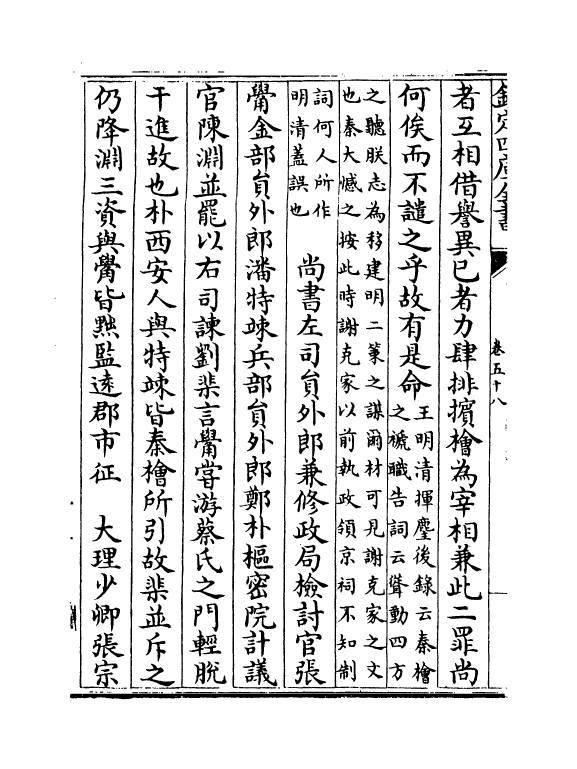 欽定四庫全書
卷五十八
者互相借譽異已者力肆排擯檜為宰相兼此二罪尚
何俟而不譴之乎故有是命
王明清揮麈後錄云秦檜
之褫職告詞云聳動四方
之聽朕志為移建明二策之謀爾材可見謝克家之文
也秦大憾之按此時謝克家以前執政領京祠不知制
詞何人所作
明清蓋誤也
尚書左司員外郎兼修政局檢討官張
觷金部員外郎潘特竦兵部員外郎鄭朴樞密院計議
官陳淵並罷以右司諫劉棐言觷甞游蔡氏之門輕脫
干進故也朴西安人與特竦皆秦檜所引故棐並斥之
仍降淵三資與觷皆㸃監逺郡市征 大理少卿張宗